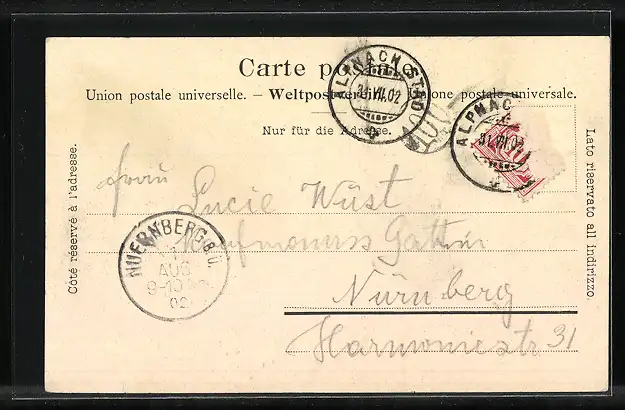 Carte postale.
Union postale universelle. – Weltpostverein – Unione postale universale.
Nur für die Adresse.
Côté réservé à l'adresse.
Lato riservato all indirizzo.
ALPNACH STAD
31.VII.02
ALPNAC
31.VII.02
Frau Lucie Wüst
Kaufmanns Gattin
Nürnberg
Harmoniestr 31
NUERNBERG 8.Ü.
AUG
9-10
02